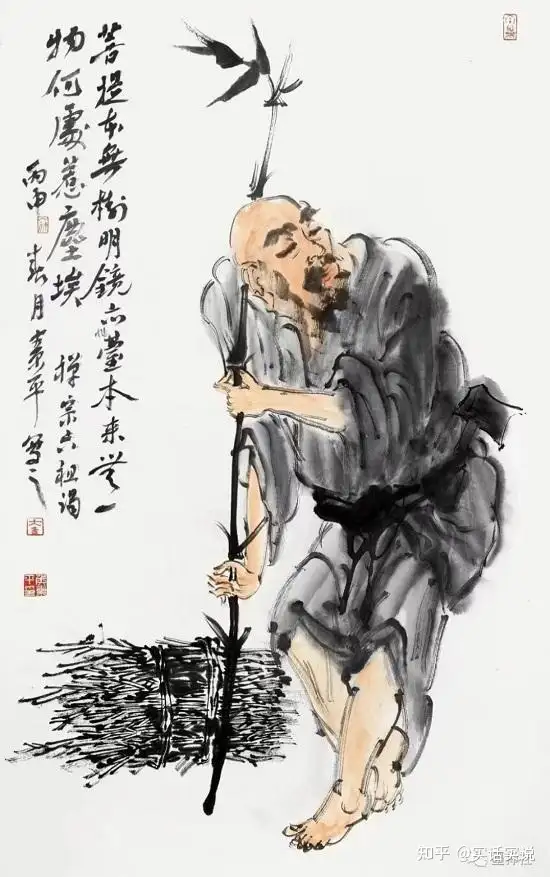 菩提本無樹明鏡亦非臺本來無一
物何處惹塵埃
禪宗六祖偈
丙申春月袁平寫之
知乎 @实话实说